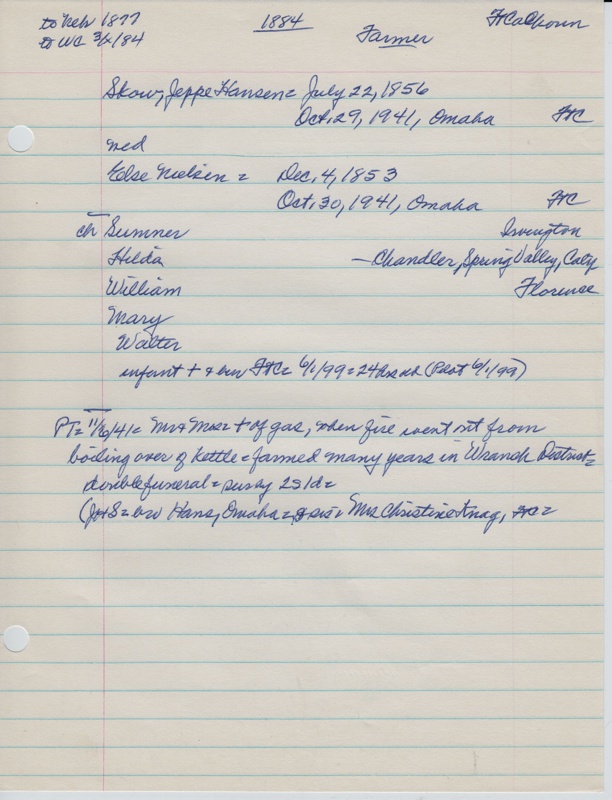 to Neb 1877 1884 FtCalhoun
to WC 3/x/84 Farmer
Skow, Jeppe Hansen = July 22, 1856
Oct. 29, 1941, Omaha FtC
med
Else Nielsen = Dec. 4, 1853
Oct. 30, 1941, Omaha FtC
ch Sumner Irvington
Hilda — Chandler, Spring Valley, Caly
William Florence
Mary
Walter
infant + & bur FtC = 6/1/99 = (Pilot 6/1/99)
PT = 11/6/41 = Mr & Mrs = + of gas, when fire went out from
boiling over of kettle = farmed many years in Wranch District =
double funeral = surv by 2s 1d =
(JHS = bro Hans, Omaha = & sis = Mrs Christine Knag, FtC =